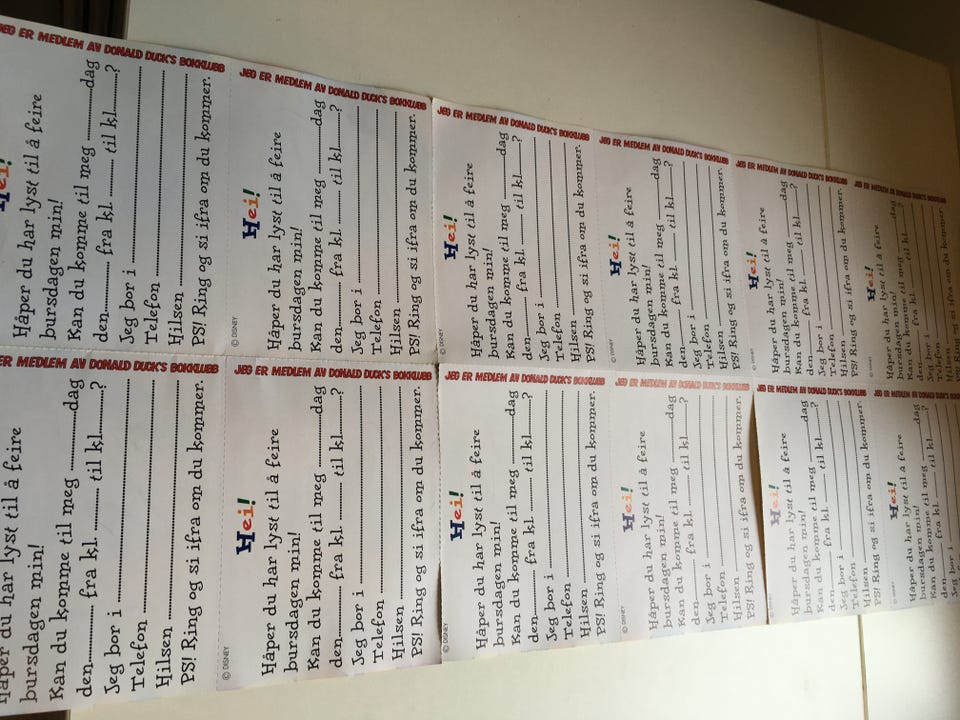 JEG ER MEDLEM AV DONALD DUCK'S BOKKLUBB
Hei!
Håper du har lyst til å feire
bursdagen min!
Kan du komme til meg ........dag
den........ fra kl. ........ til kl........?
Jeg bor i ........
Telefon ........
Hilsen ........
PS! Ring og si ifra om du kommer.
JEG ER MEDLEM AV DONALD DUCK'S BOKKLUBB
© DISNEY
Hei!
Håper du har lyst til å feire
bursdagen min!
Kan du komme til meg ........dag
den........ fra kl. ........ til kl........?
Jeg bor i ........
Telefon ........
Hilsen ........
PS! Ring og si ifra om du kommer.
JEG ER MEDLEM AV DONALD DUCK'S BOKKLUBB
© DISNEY
Hei!
Håper du har lyst til å feire
bursdagen min!
Kan du komme til meg ........dag
den........ fra kl. ........ til kl........?
Jeg bor i ........
Telefon ........
Hilsen ........
PS! Ring og si ifra om du kommer.
JEG ER MEDLEM AV DONALD DUCK'S BOKKLUBB
© DISNEY
Hei!
Håper du har lyst til å feire
bursdagen min!
Kan du komme til meg ........dag
den........ fra kl. ........ til kl........?
Jeg bor i ........
Telefon ........
Hilsen ........
PS! Ring og si ifra om du kommer.
JEG ER MEDLEM AV DONALD DUCK'S BOKKLUBB
© DISNEY
Hei!
Håper du har lyst til å feire
bursdagen min!
Kan du komme til meg ........dag
den........ fra kl. ........ til kl........?
Jeg bor i ........
Telefon ........
Hilsen ........
PS! Ring og si ifra om du kommer.
JEG ER MEDLEM AV DONALD DUCK'S
© DISNEY
Hei!
Håper du har lyst til å feire
bursdagen min!
Kan du komme til meg ........dag
den ........ fra kl. ........ til kl........?
Jeg bor i ........
Telefon ........
Hilsen ........
ER MEDLEM AV DONALD DUCK'S BOKKLUBB
Håper du har lyst til å feire
bursdagen min!
Kan du komme til meg ........dag
den........ fra kl. ........ til kl........?
Jeg bor i ........
Telefon ........
Hilsen ........
PS! Ring og si ifra om du kommer.
JEG ER MEDLEM AV DONALD DUCK'S BOKKLUBB
© DISNEY
Hei!
Håper du har lyst til å feire
bursdagen min!
Kan du komme til meg ........dag
den........ fra kl. ........ til kl........?
Jeg bor i ........
Telefon ........
Hilsen ........
PS! Ring og si ifra om du kommer.
JEG ER MEDLEM AV DONALD DUCK'S BOKKLUBB
© DISNEY
Hei!
Håper du har lyst til å feire
bursdagen min!
Kan du komme til meg ........dag
den........ fra kl. ........ til kl........?
Jeg bor i ........
Telefon ........
Hilsen ........
PS! Ring og si ifra om du kommer.
JEG ER MEDLEM AV DONALD DUCK'S BOKKLUBB
© DISNEY
Hei!
Håper du har lyst til å feire
bursdagen min!
Kan du komme til meg ........dag
den........ fra kl. ........ til kl........?
Jeg bor i ........
Telefon ........
Hilsen ........
PS! Ring og si ifra om du kommer.
JEG ER MEDLEM AV DONALD DUCK'S BOKKLUBB
Hei!
Håper du har lyst til å feire
bursdagen min!
Kan du komme til meg ........dag
den........ fra kl. ........ til kl........?
Jeg bor i ........
Telefon ........
Hilsen ........
PS! Ring og si ifra om du kommer.
JEG ER MEDLEM AV DONALD DUCK'S
Hei!
Håper du har lyst til å feire
bursdagen min!
Kan du komme til meg ........dag
den........ fra kl. ........ til kl........?
Jeg bor i